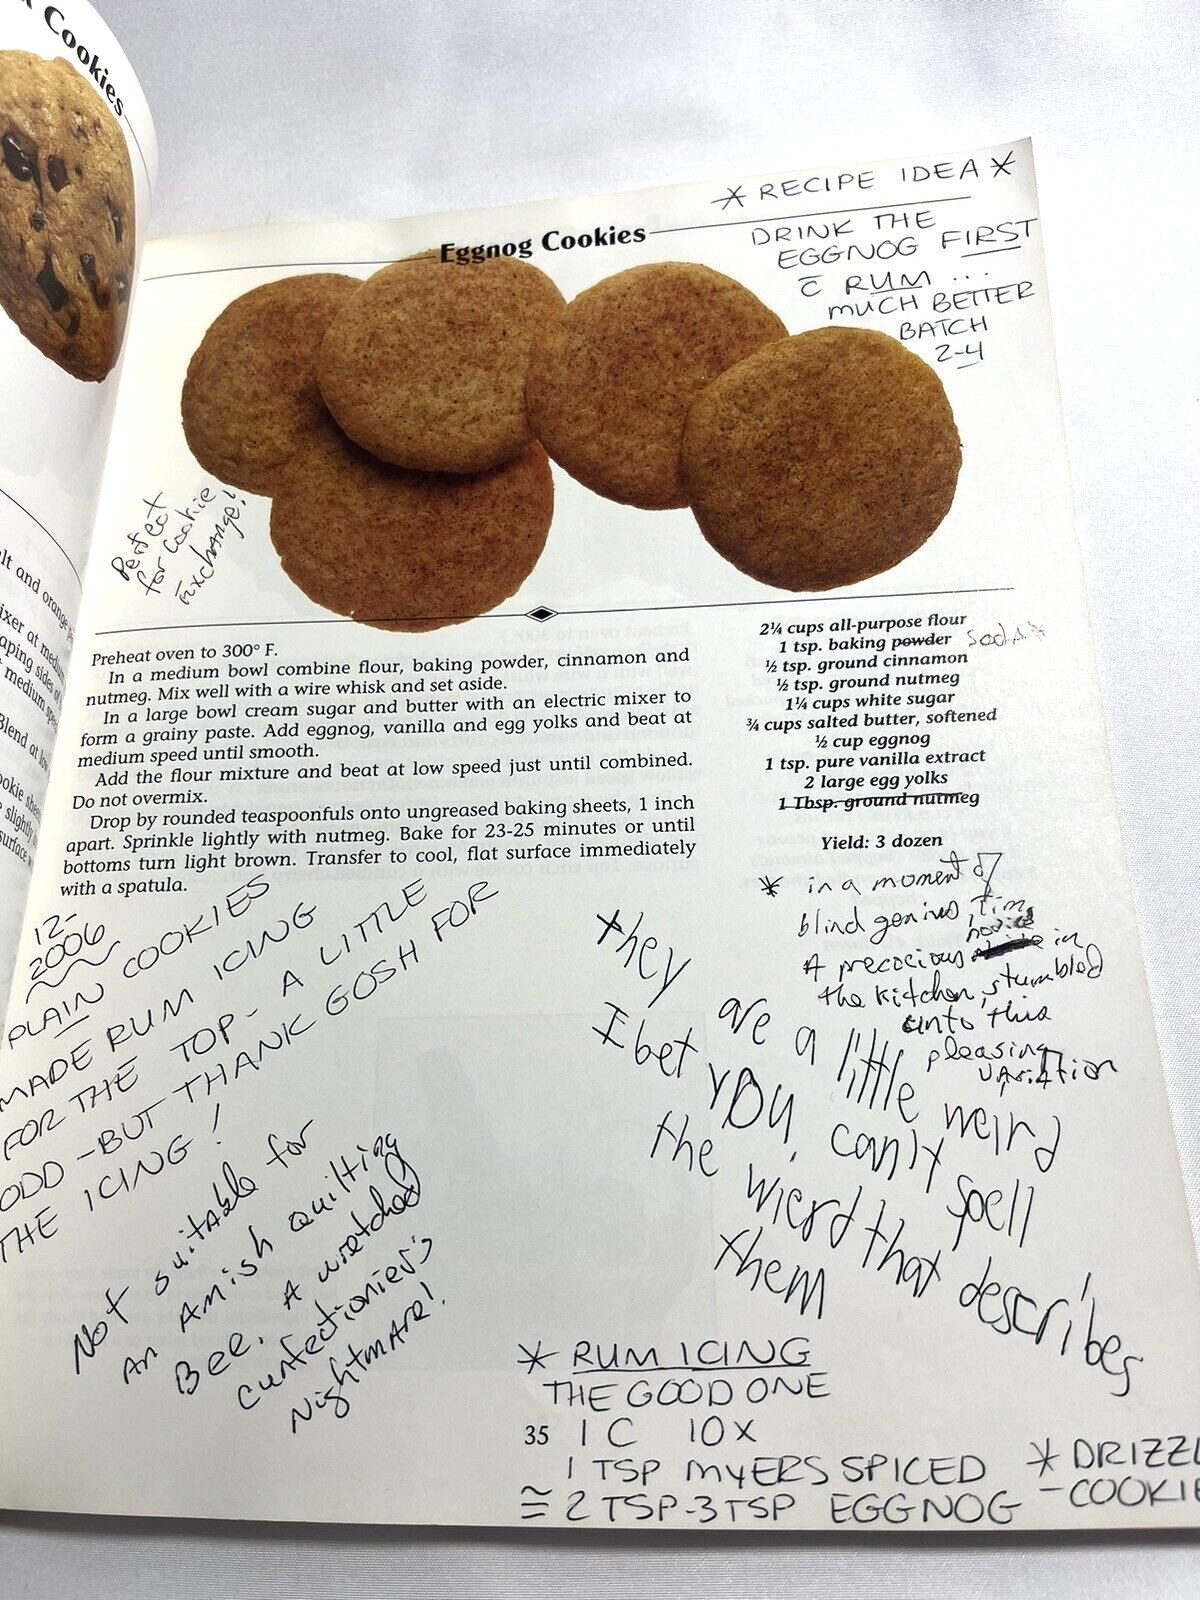 Cookies
* RECIPE IDEA *
DRINK THE
EGGNOG FIRST
c̄ RUM ...
MUCH BETTER
BATCH
2-4
Eggnog Cookies
Perfect
for cookie
Exchange!
lt and orange
ixer at medium
aping sides of
medium speed
Blend at low
ookie sheets
slightly
surface
Preheat oven to 300° F.
In a medium bowl combine flour, baking powder, cinnamon and
nutmeg. Mix well with a wire whisk and set aside.
In a large bowl cream sugar and butter with an electric mixer to
form a grainy paste. Add eggnog, vanilla and egg yolks and beat at
medium speed until smooth.
Add the flour mixture and beat at low speed just until combined.
Do not overmix.
Drop by rounded teaspoonfuls onto ungreased baking sheets, 1 inch
apart. Sprinkle lightly with nutmeg. Bake for 23-25 minutes or until
bottoms turn light brown. Transfer to cool, flat surface immediately
with a spatula.
2¼ cups all-purpose flour
1 tsp. baking powder Soda *
½ tsp. ground cinnamon
½ tsp. ground nutmeg
1¼ cups white sugar
¾ cups salted butter, softened
½ cup eggnog
1 tsp. pure vanilla extract
2 large egg yolks
1 Tbsp. ground nutmeg
Yield: 3 dozen
* in a moment of
blind genius, Tim,
A precocious novice in
the kitchen, stumbled
unto this
pleasing
variation
12-
2006
PLAIN COOKIES
MADE RUM ICING
FOR THE TOP - A LITTLE
ODD - BUT THANK GOSH FOR
THE ICING!
Not suitable for
An Amish quilting
Bee. A wretched
confectionier's
Nightmare!
they are a little weird
I bet you can't spell
the wierd that describes
them
* RUM ICING
THE GOOD ONE
1 C 10X
1 TSP MYERS SPICED
≅ 2 TSP-3TSP EGGNOG
* DRIZZL
- COOKIE
35